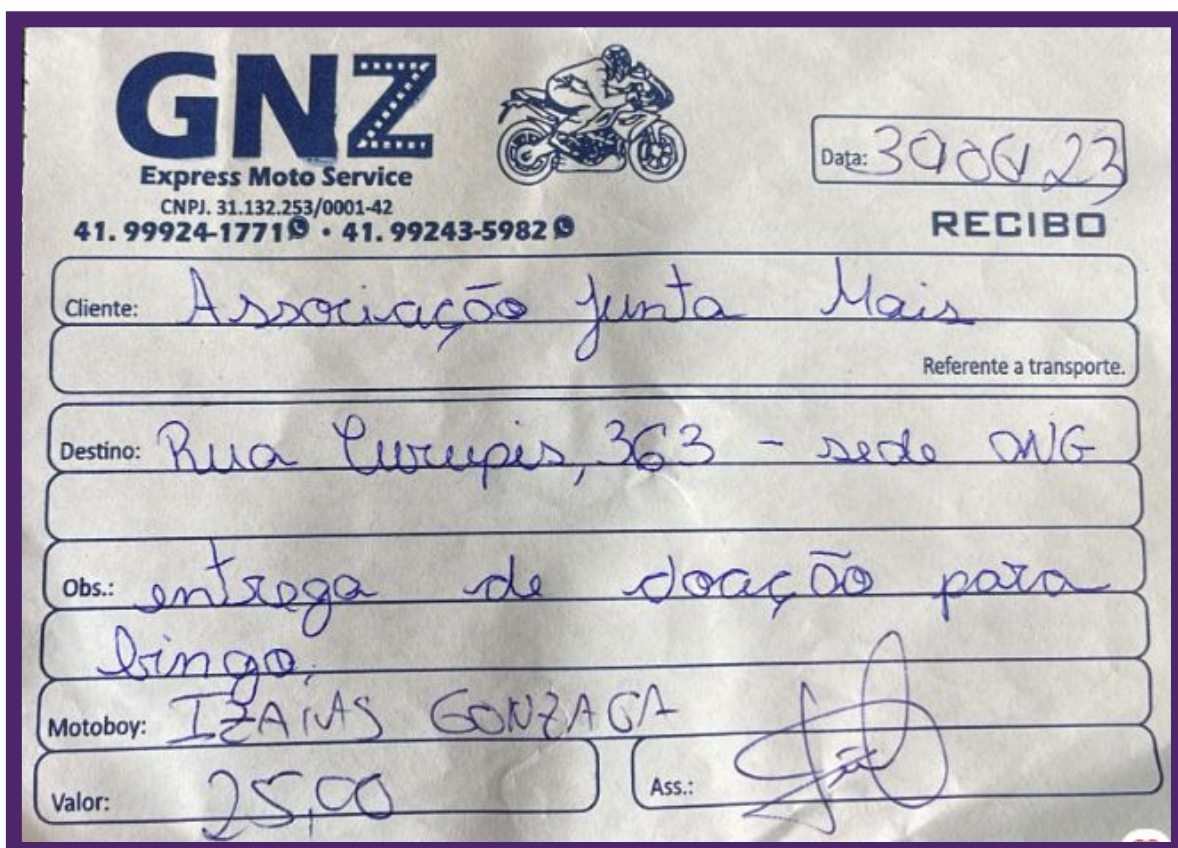 GNZ
Express Moto Service
CNPJ. 31.132.253/0001-42
41. 99924-1771 • 41. 99243-5982
Data: 30 06 23
RECIBO
Cliente: Associação Junta Mais
Referente a transporte.
Destino: Rua Curupis, 363 - sede ONG
Obs.: entrega de doação para
bingo.
Motoboy: IZAIAS GONZAGA
Valor: 25,00
Ass.: